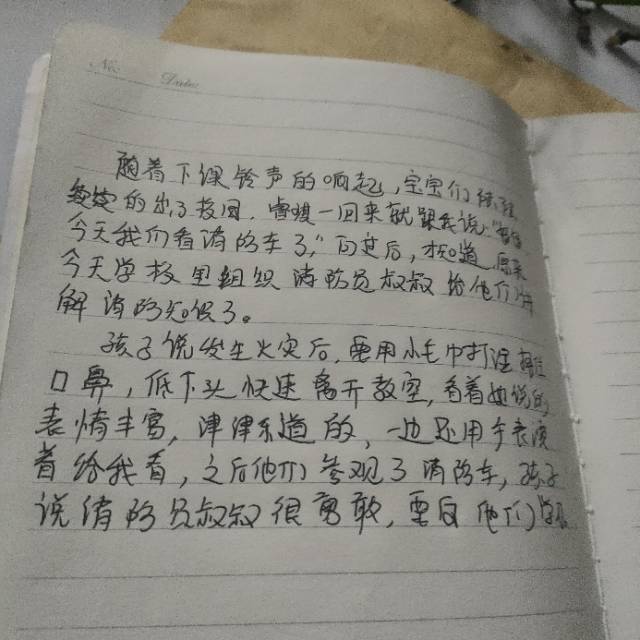 No.   Date.
随着下课铃声的响起,宝宝们陆陆
续续的出了校园,曹煜一回来就跟我说:“妈妈
今天我们看消防车了,”问过后,才知道,原来
今天学校里组织消防员叔叔给他们讲
解消防知识了。
孩子说发生火灾后,要用小毛巾打湿捂住
口鼻,低下头快速离开教室,看着她说的
表情丰富,津津乐道的,一边还用手表演
着给我看,之后他们参观了消防车,孩子
说消防员叔叔很勇敢,要向他们学习